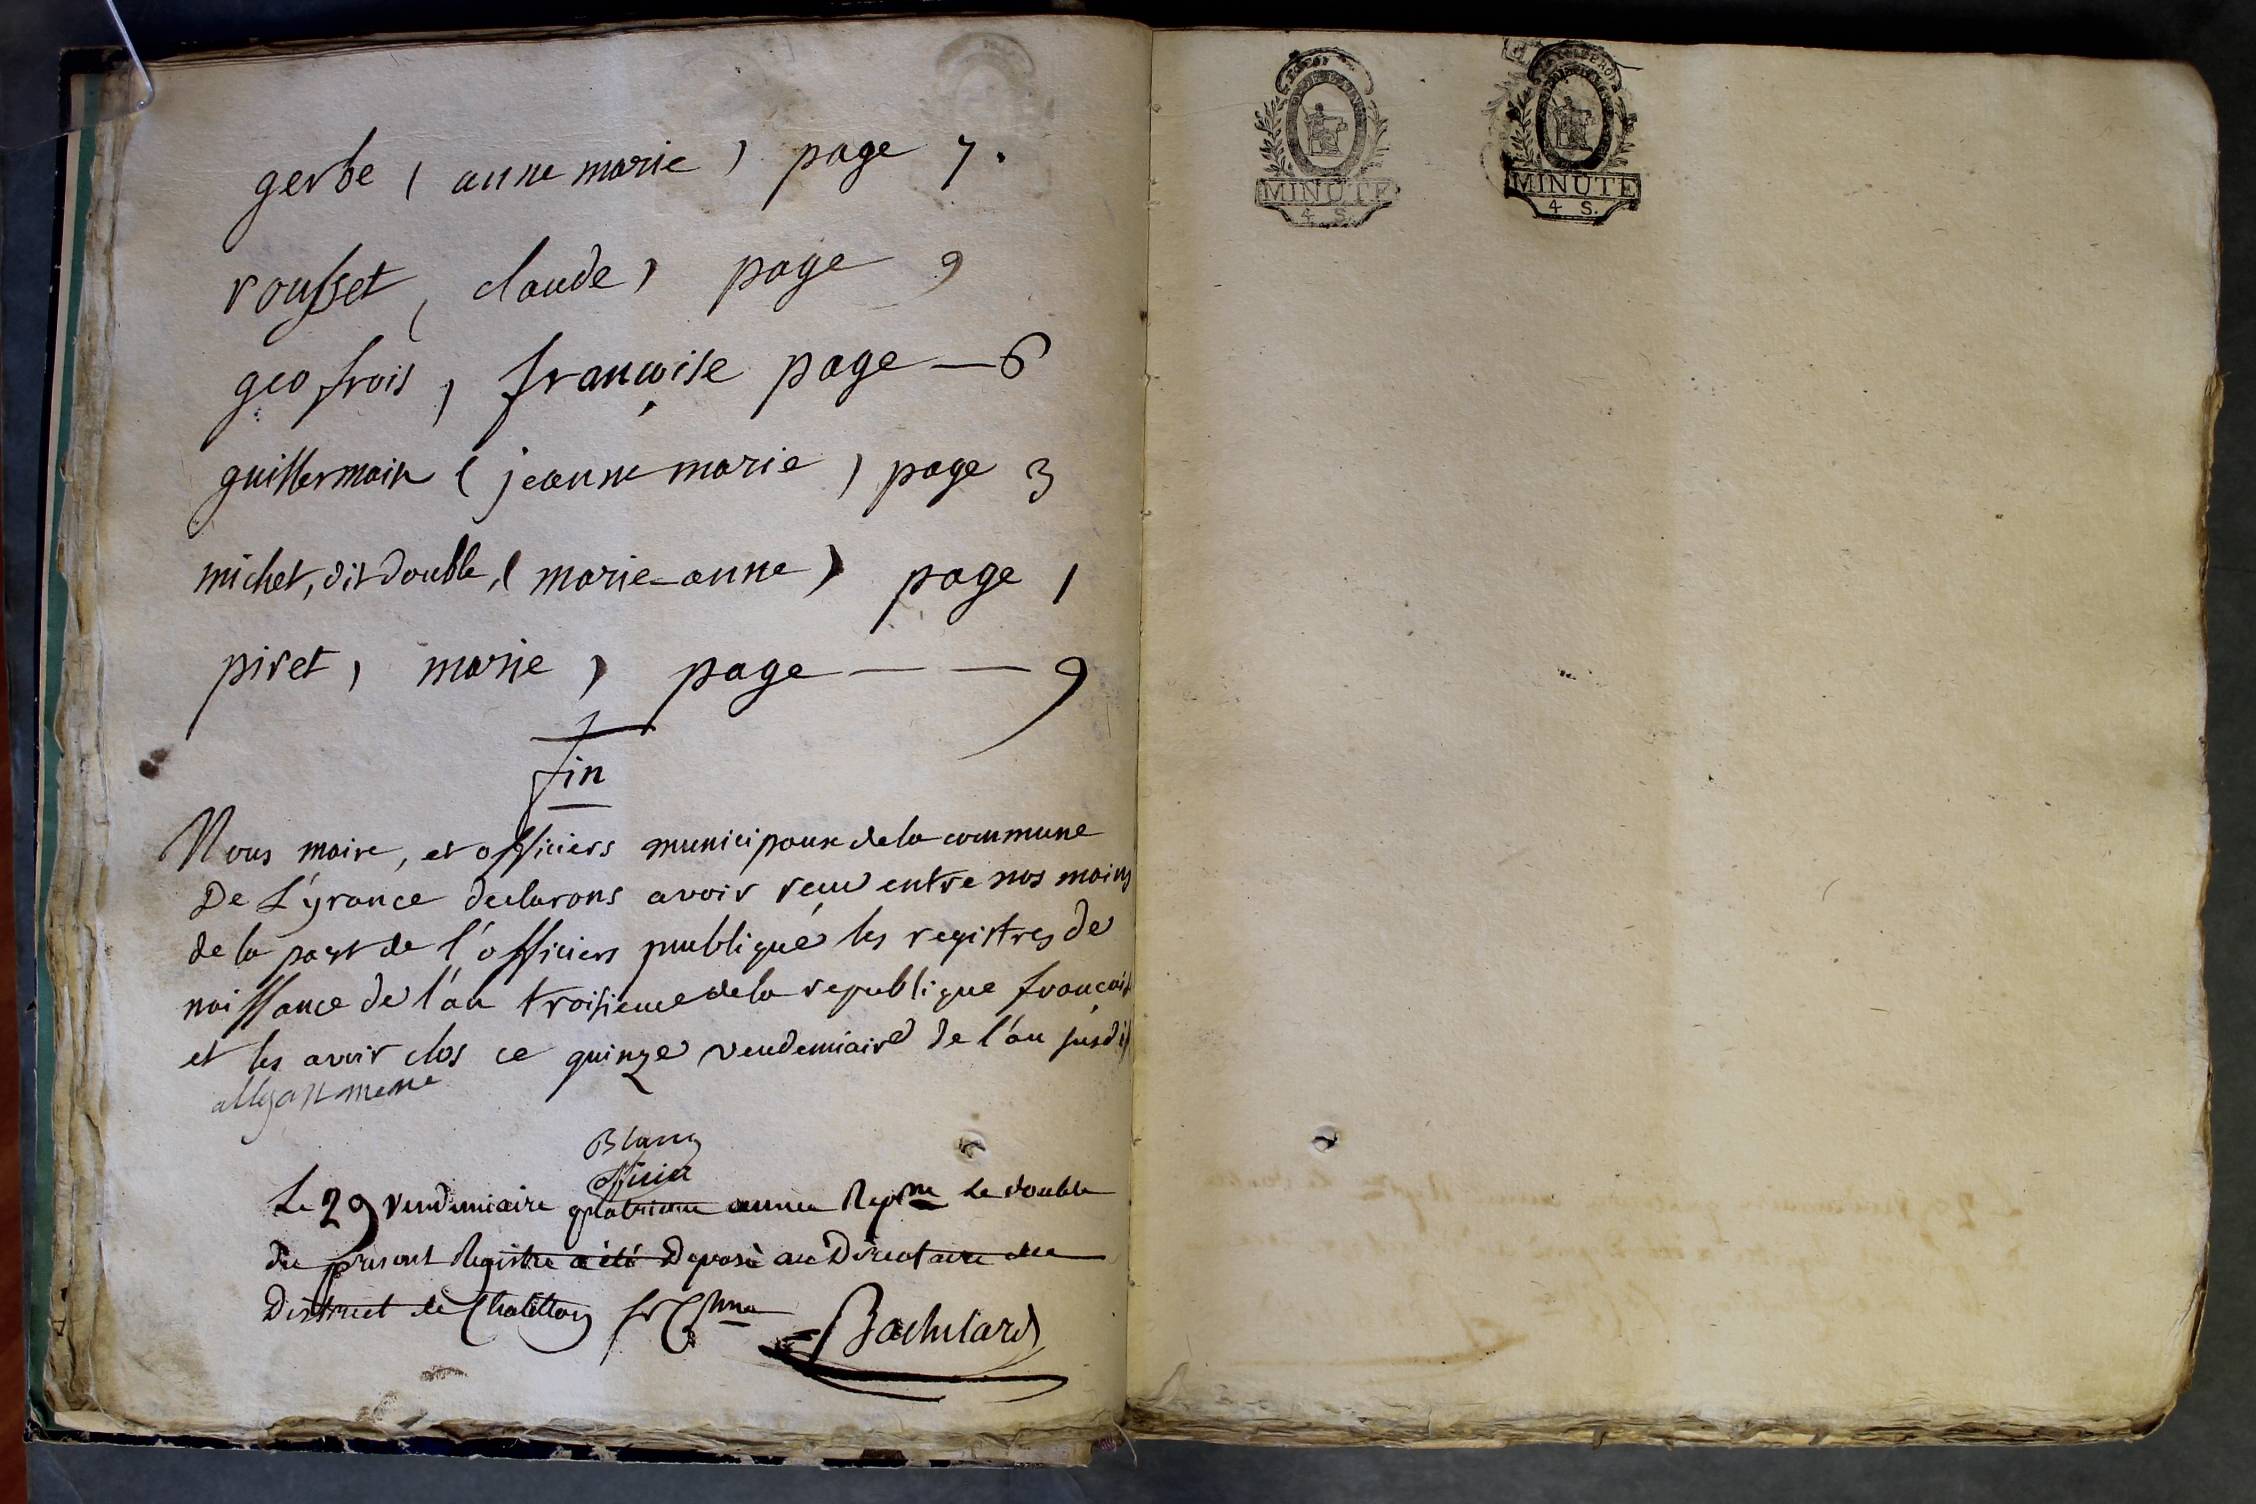 gerbe ( anne marie ) page 7.
rousset ( claude ) page 9
geofrois ) françoise page — 6
guillermain ( jeanne marie ) page 3
michet, dit double, ( marie-anne ) page 1
piret ) marie ) page — — 9
fin
Nous maire, et officiers municipaux de la commune
De L'yrance declarons avoir reçu entre nos mains
de la part de l'officiers publique les registres de
naissance de l'an troisieme de la republique françois
et les avoir clos ce quinze vendemiaire de l'an susdit
Blanc
officier
Le 29 vendemiaire quatrieme année Repne le double
du present Registre a été Deposé au Directoire du
District de Chatillon
Bachelard
MINUTE
4 S.
MINUTE
4 S.